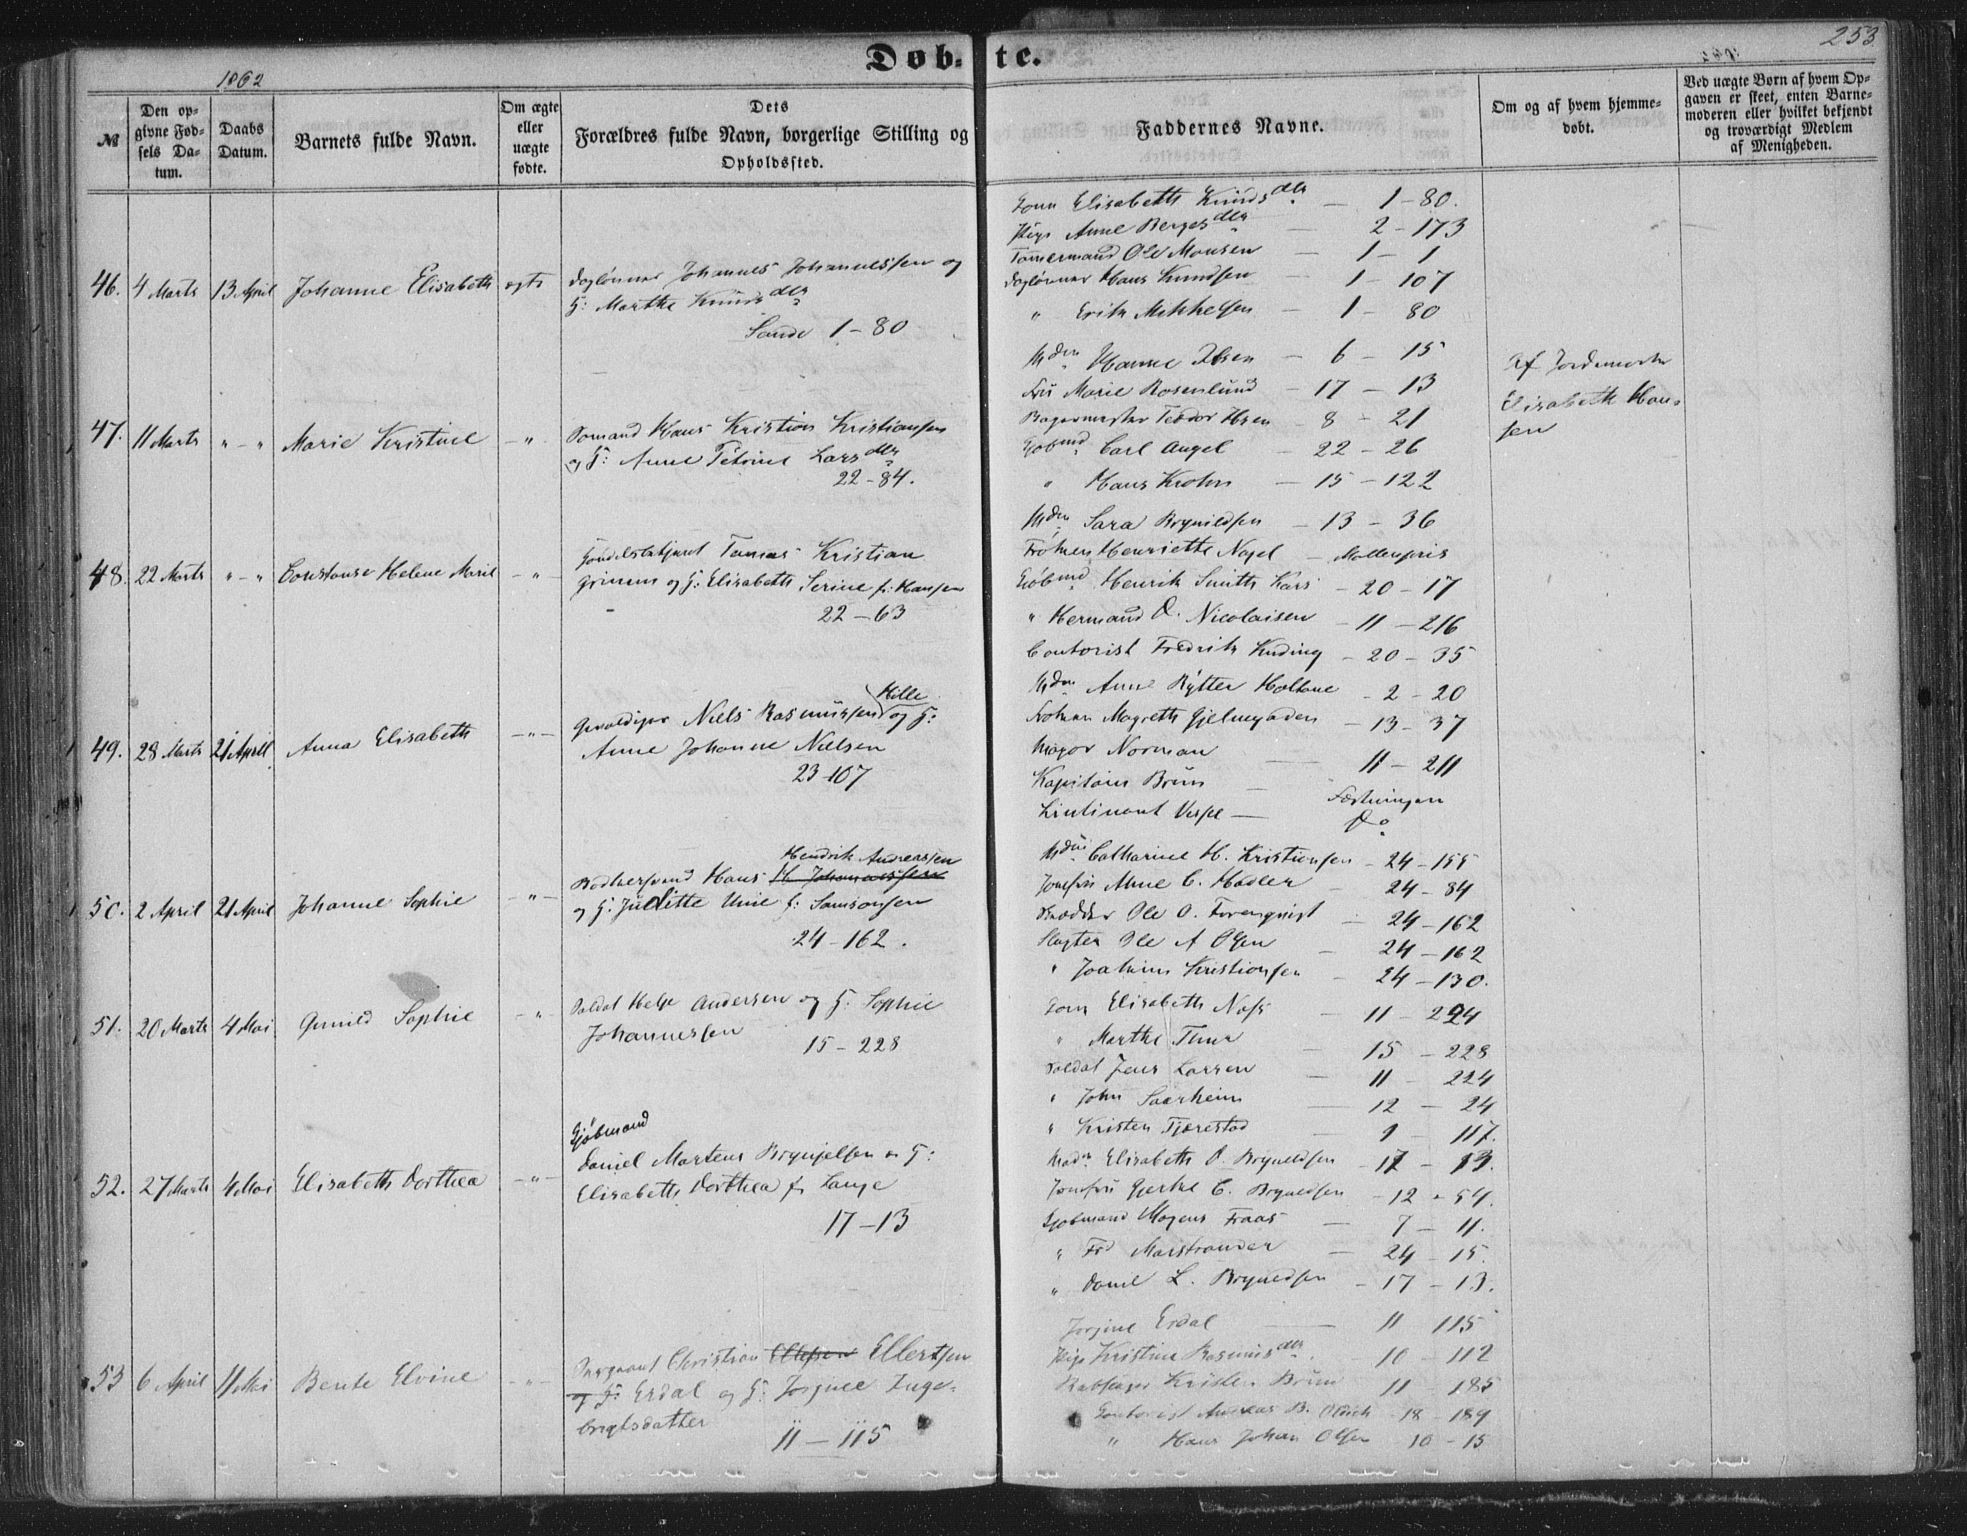 1862
Døb-te.
253
№
Den opgivne Fødsels Datum.
Daabs Datum.
Barnets fulde Navn.
Om ægte eller uægte fødte.
Dets Forældres fulde Navn, borgerlige Stilling og Opholdssted.
Faddernes Navne.
Om og af hvem hjemmedøbt.
Ved uægte Børn af hvem Opgaven er skeet, enten Barnemoderen eller hvilket bekjendt og troværdigt Medlem af Menigheden.
46. 4 Marts 13 April Johanne Elisabeth ægte
Daglønner Johannes Johannessen og
H: Marthe Knudsdtr
Sande 1-80
Kone Elisabeth Knudsdtr — 1-80.
Pige Anne Bergesdtr — 2-173
Tømermand Ole Monsen — 1-1
Daglønner Hans Knudsen — 1-107
" Erik Mikkelsen — 1-80
47. 11 Marts " - " Marie Kristine - " -
Somand Hans Kristian Kristiansen
og H: Anne Petrine Larsdtr
22-84.
Mdm Hanne Ibsen — 6-15
Frü Marie Rosenlund — 17-13
Bagermester Teodor Ibsen — 8-21
Kjøbmd Carl Angel — 22-26
" Hans Krohn — 15-122
Af Jordemoder
Elisabeth Han-
sen
48. 22 Marts " - " Constanse Helene Marie - " -
Tomas Kristian
og H: Elisabeth Serine f: Hansen
22-63
Mdm Sara Brynildsen — 13-36
Frøken Henriette Nagel — Møllenpris
Kjøbmd Henrik Smith Kars — 20-17
" Hermand D. Nicolaisen — 11-216
Contorist Fredrik Knding — 20-35
49. 28 Marts 21 April Anna Elisabeth - " -
Hille
Gevaldiger Niels Rasmussen og H:
Anne Johanne Nielsen
23-107
Mdm Anne Rytter Holtane — 2-20
Frøken Magreth Gjelmeyden — 13-37
Major Norman — 11-211
Kapitain Brun — Fæstningen
Lieutinant — Do
50. 2 April 21 April Johanne Sophie - " -
Hendrik Andreassen
Bødkersvend Hans H Johannessen
og H: Juditte Unie f: Samsonsen
24-162.
Mdm Catharine H. Kristiansen — 24-155
Jomfru Anne C. Hadler — 24-84
Ole O. Forenqvist — 24-162
Slagter Ole A Olsen — 24-162
" Joakim Kristiansen — 24-130.
51. 20 Marts 4 Mai Gunild Sophie - " -
Soldat Helje Andersen og H. Sophie
Johannessen
15-228
Kone Elisabeth Næss — 11-224
" Marthe — 15-228
Soldat Jens Larsen — 11-224
" John Saarheim — 12-24
" Kristen Tjærestad — 9-117.
52. 27 Marts 4 Mai Elisabeth Dorthea - " -
Kjøbmand
Daniel Martens Brynjelsen og H:
Elisabeth Dorthea f. Lange
17-13
Madm Elisabeth D. Bryneldsen — 17-13.
Jomfru Gjertke C. Bryneldsen — 12-54.
Kjøbmand Mogens Faas — 7-11.
" Fr Marstrander — 24-15
" Daniel L. Bryneldsen — 17-13.
53 6 April 11 Mai Bente Elvine - " -
Sergeant Christian Ellefsen Ellertsen
og H: Erdal og H: Jorgine Inge-
brigtsdatter
11-115
Jorgine Erdal — 11-115
Pige Kristine Rasmusdtr — 10-112
Kristen Brun 11-185
Contorist Andreas B. — 18-189
" Hans Johan Olsen 10-15